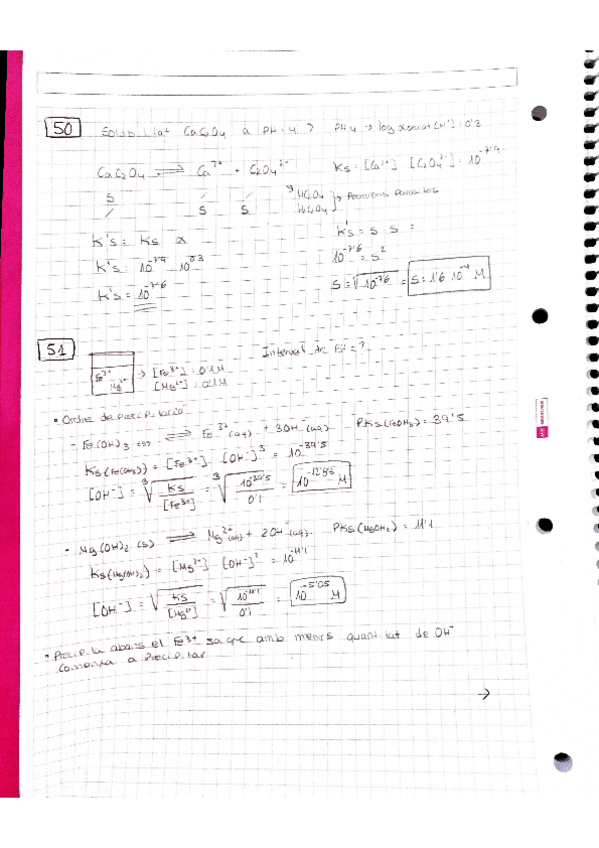 50 Solubilitat CaC2O4 a pH=4? pH4 → log α oxalat(H+) = 0'3
CaC2O4 ⇌ Ca2+ + C2O4 2- Ks = [Ca2+] [C2O4 2-] = 10^-7'9
S
/ S S
Reaccions Paràsites
K's = Ks α K's = S · S =
K's = 10^-7'9 10^0'3 10^-7'6 = S^2
K's = 10^-7'6 S = √10^-7'6 = S = 1'6 10^-4 M
51 Interval de pH = ?
Fe3+ Mg2+ → [Fe3+] = 0'1M
[Mg2+] = 0'1M
• Ordre de precipitació
- Fe(OH)3 (s) ⇌ Fe3+ (aq) + 3OH- (aq) PKs(Fe(OH)3) = 39'5
Ks(Fe(OH)3) = [Fe3+] · [OH-]^3 = 10^-39'5
[OH-] = ∛(Ks / [Fe3+]) = ∛(10^-39'5 / 0'1) = 10^-12'83 M
- Mg(OH)2 (s) ⇌ Mg2+ (aq) + 2OH- (aq). PKs(Mg(OH)2) = 11'1
Ks(Mg(OH)2) = [Mg2+] [OH-]^2 = 10^-11'1
[OH-] = √(Ks / [Mg2+]) = √(10^-11'1 / 0'1) = 10^-5'05 M
• Precipita abans el Fe3+ ja que amb menys quantitat de OH-
comença a precipitar
→